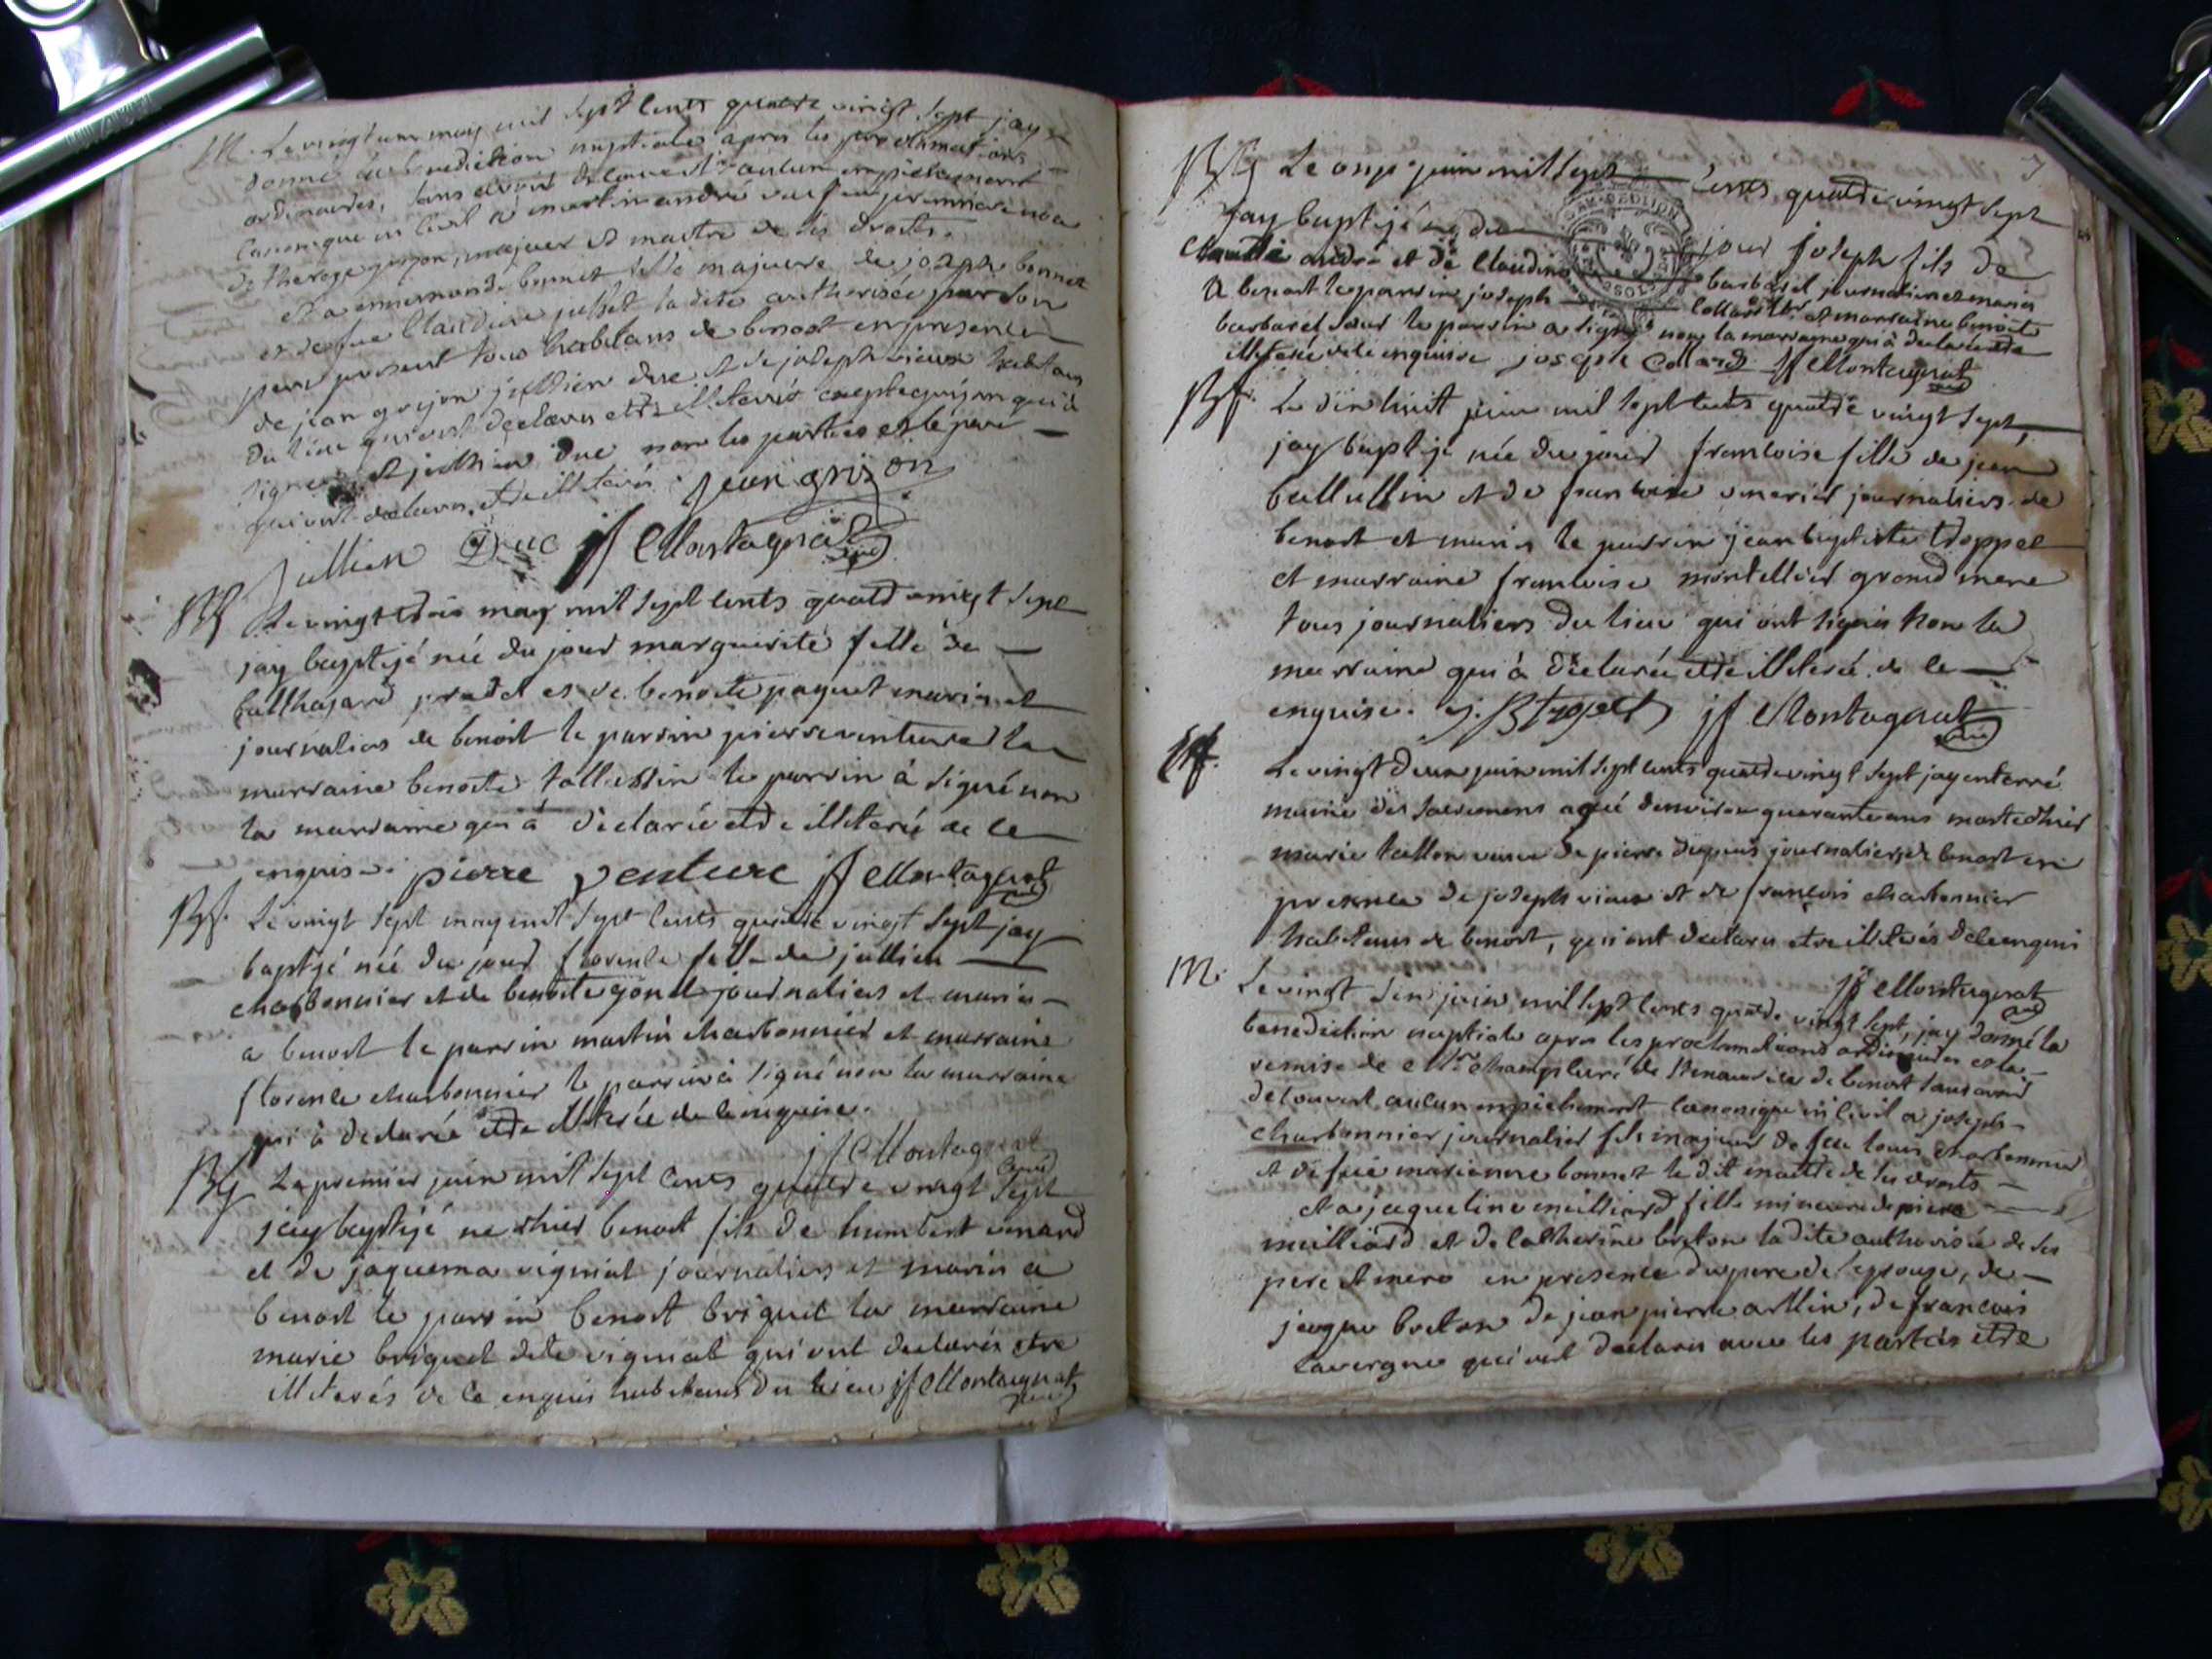 M. Le vingt un may mil sept cents quatre vingt sept jay
donné la benediction nuptiale apres les proclamations
ordinaires, sans avoir decouvert aucun empiechement
canonique ni civil a martin andré
de therese grison, majeur et maitre de ses droits.
et a ennemonde bonnet fille majeure de joseph bonnet
et de feue Claudine jullet la dite authorisée par son
pere present tous habitans de benost en presence
de jean grison jullien duc et de joseph vieux habitans
du lieu qui ont declarés etre illiterés excepté grison qui a
signé et jullien duc non les parties et le pere
qui ont declarés etre illiterés. jean grison
jullien Duc jf Montagnat curé
Bf Le vingt trois may mil sept cents quatre vingt sept
jay baptisé née du jour marguerite fille de
balthazard pradel et de benoite paquet mariés et
journaliers de benost le parrin pierre venture la
marraine benoite tallussin le parrin à signé non
la marraine qui à declarée etre illiterée de ce
enquise. pierre venture jf Montagnat curé
Bf. Le vingt sept may mil sept cents quatre vingt sept jay
baptisé née du jour florence fille de jullien
charbonnier et de benoite gonet journaliers et mariés
a benost le parrin martin charbonnier et marraine
florence charbonnier le parrin à signé non la marraine
qui à declarée etre illiterée de ce enquise.
jf Montagnat curé
Bf Le premier juin mil sept cents quatre vingt sept
jay baptisé ne hier benost fils de humbert venard
et de jaquema vigniat journaliers et mariés a
benost le parrin benost briquet la marraine
marie briquet dite vigniat qui ont declarés etre
illiterés de ce enquis habitans du lieu jf Montagnat curé
Bf Le onze juin mil sept cents quatre vingt sept
jay baptisé né du jour joseph fils de
Claude andré et de Claudine barbaret journaliers mariés
a benost le parrin joseph collard et marraine benoite
barbaret le parrin a signé non la marraine qui à declarée etre
illiterée de ce enquise joseph Collard jf Montagnat curé
Bf. Le dix huit juin mil sept cents quatre vingt sept,
jay baptisé née du jour francoise fille de jean
ballussin et de francoise venerier journaliers de
benost et mariés le parrin jean baptiste troppet
et marraine francoise montellier grand mere
tous journaliers du lieu qui ont signés non la
marraine qui à declarée etre illiterée de ce
enquise. j. B tropet jf Montagnat curé
Le vingt deux juin mil sept cents quatre vingt sept jay enterré
munie des sacremens agée denviron quarante ans morte hier
marie tallon veuve de pierre dupuis journalier de benost en
presence de joseph vieux et de françois charbonnier
habitans de benost, qui ont declarés etre illiterés de ce enquis
jf Montagnat curé
M. Le vingt six juin mil sept cents quatre vingt sept, jay donné la
benediction nuptiale apres les proclamations ordinaires et la
remise de Mr champlure de benost sans avoir
decouvert aucun empiechement canonique ni civil a joseph
charbonnier journalier fils majeur de feu louis charbonnier
et de feue marianne bonnet le dit maitre de ses droits
et a jaqueline meilliard fille mineure de pierre
meilliard et de catherine breton la dite authorisée de ses
pere et mere en presence du pere de lepouse, de
jaque breton de jean pierre arllin, de francois
lavergne qui ont declarés avec les parties etre